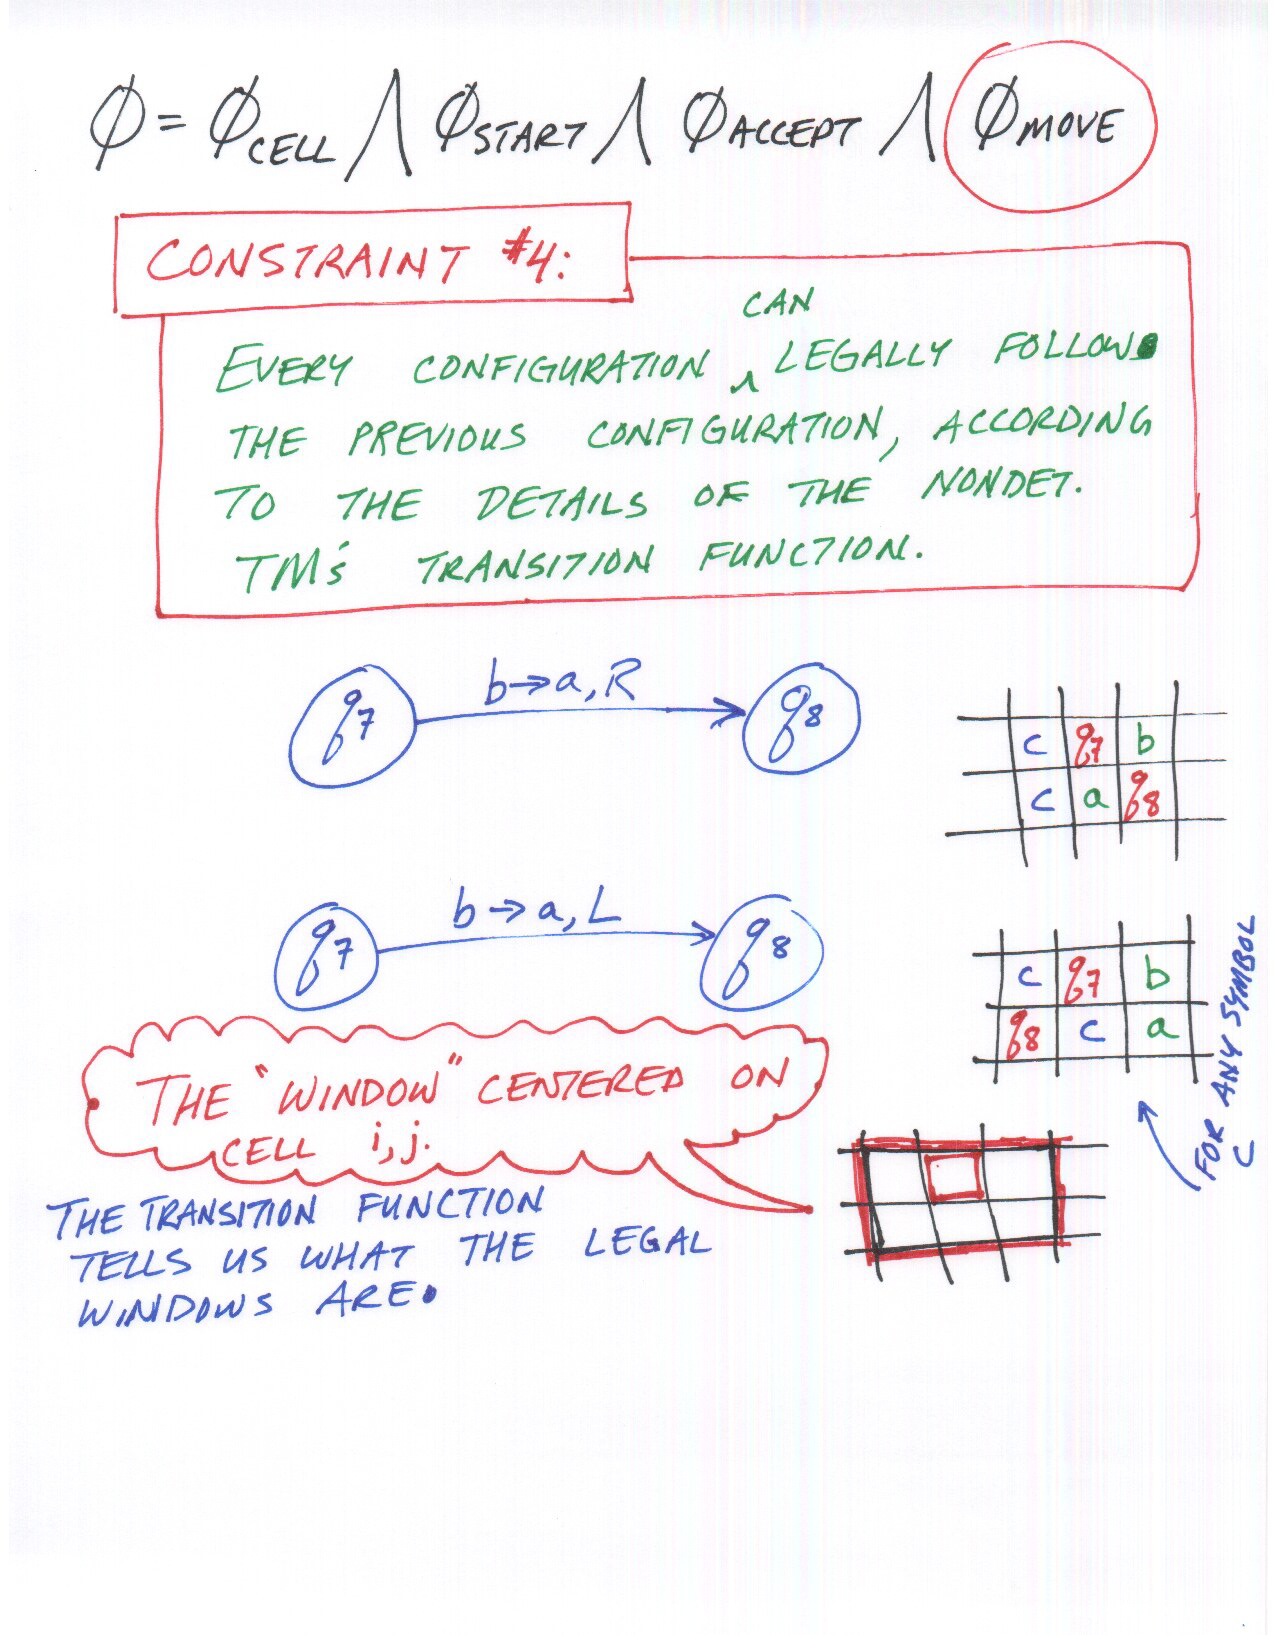 Ø = Ø CELL ∧ Ø START ∧ Ø ACCEPT ∧ Ø MOVE
CONSTRAINT #4:
CAN
EVERY CONFIGURATION ^ LEGALLY FOLLOW
THE PREVIOUS CONFIGURATION, ACCORDING
TO THE DETAILS OF THE NONDET.
TM'S TRANSITION FUNCTION.
q7 b→a, R q8
c q7 b
c a q8
q7 b→a, L q8
c q7 b
q8 c a
FOR ANY SYMBOL
C
THE "WINDOW" CENTERED ON
CELL i,j.
THE TRANSITION FUNCTION
TELLS US WHAT THE LEGAL
WINDOWS ARE.